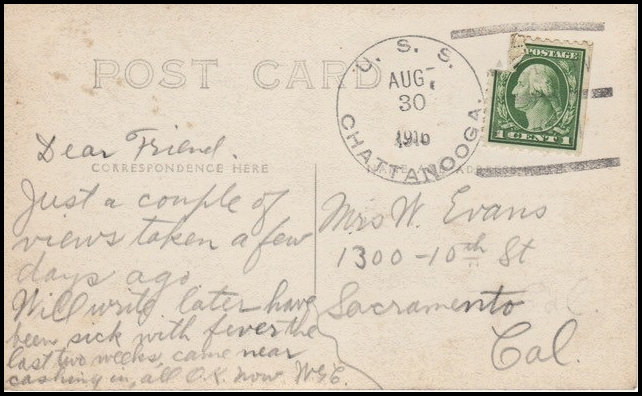 POST CARD
U. S. S.
AUG.
30
1916
CHATTANOOGA.
POSTAGE
1 CENT 1
Dear Friend.
CORRESPONDENCE HERE
Just a couple of
views taken a few
days ago
Will write later have
been sick with fever the
last two weeks, came near
cashing in, all O.K. now W.G.E.
Mrs W. Evans
1300-10th St
Sacramento
Cal.